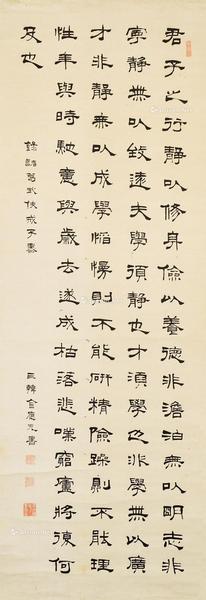 君子之行靜以修身儉以養德非澹泊無以明志非
寧靜無以致遠夫學須靜也才須學也非學無以廣
才非靜無以成學慆慢則不能研精險躁則不能理
性年與時馳意與歲去遂成枯落悲嘆窮廬將復何
及也
錄諸葛武侯戒子書
三韓金應元書